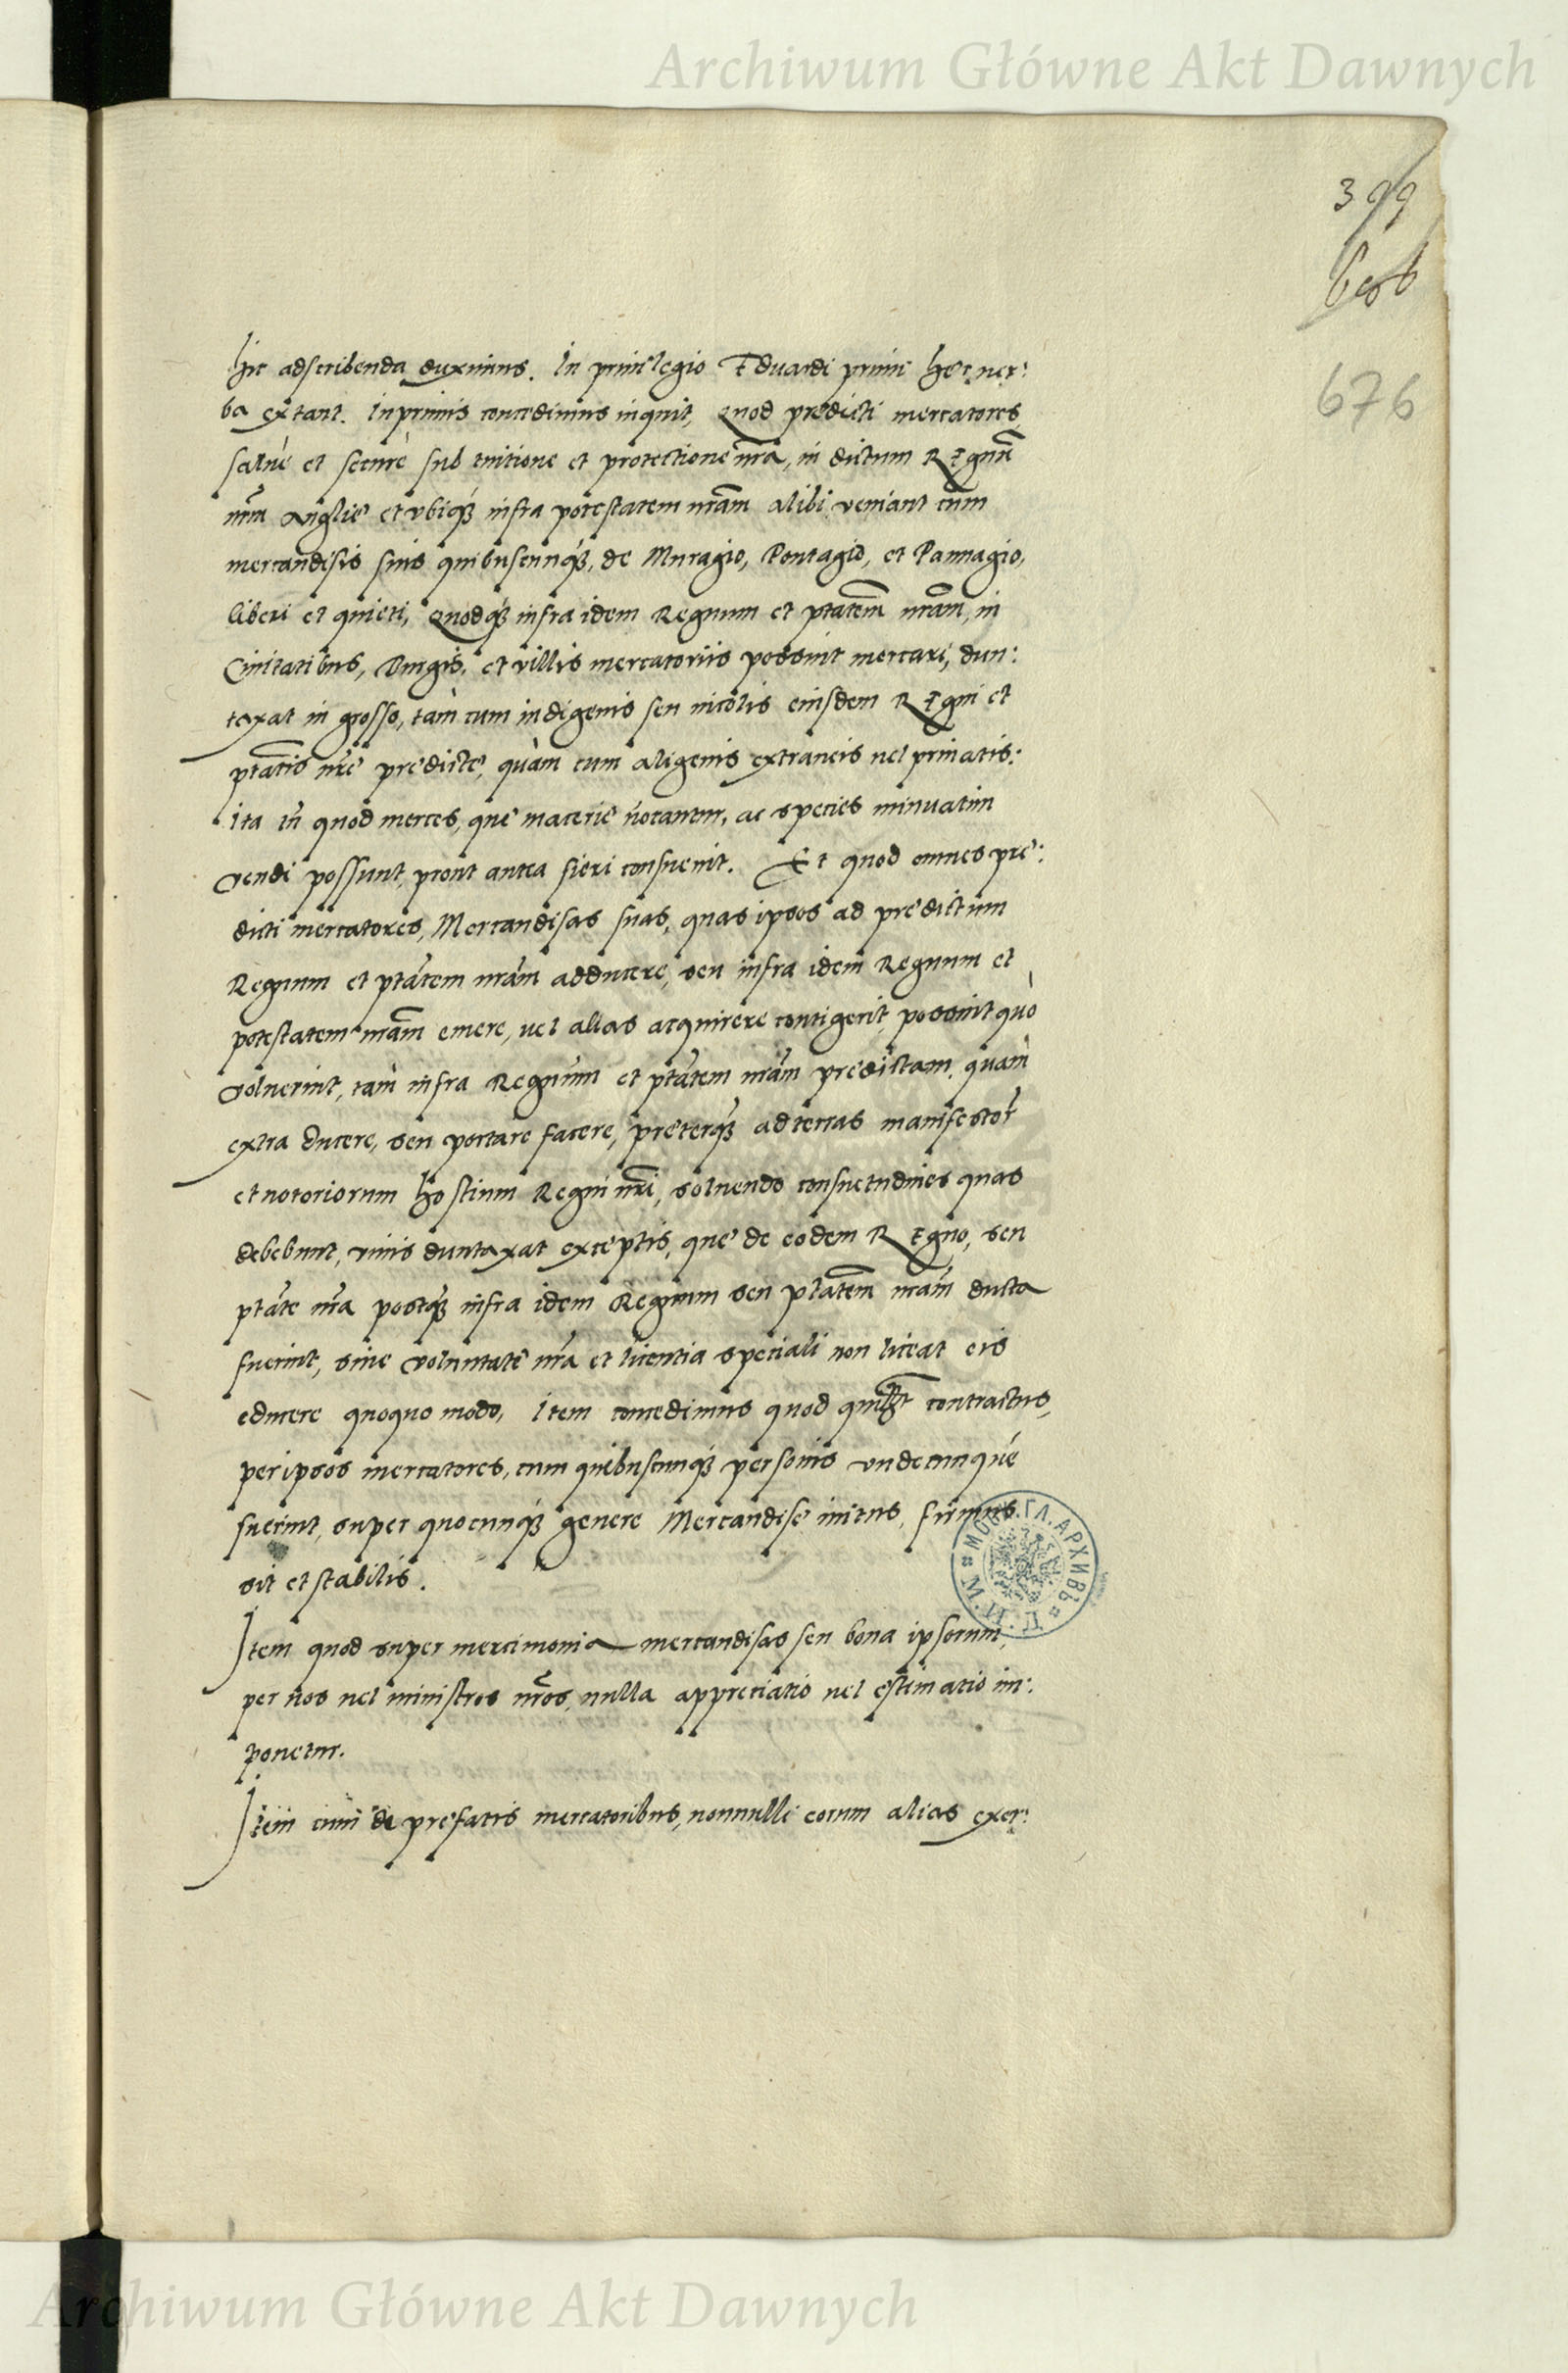 Archiwum Główne Akt Dawnych
399
606
676
hic adscribenda duximus. In priuilegio Eduardi primi hęc uer:
ba extant. Inprimis concedimus inquit, Quod predicti mercatores
saluè et securè sub tuitione et protectione nrã, in dictum REgnũ
nrm Anglię et vbiq́ȝ infra potestatem nrãm alibi veniant cum
mercandisis suis quibuscunq́ȝ, de Muragio, Pontagio, et Pannagio,
liberi et quieti, Quodq́ȝ infra idem Regnum et ptatem̃ nrãm, in
Ciuitatibus, Burgis, et villis mercatoriis possint mercari, dun:
taxat in grosso, tam cum indigenis seu incolis eiusdem REgni et
ptatis nrę prędictę, quàm cum aligenis extraneis uel priuatis:
Ita tñ quod merces, quę macerię uocantur, ac species minuatim
vendi possunt, prout antea fieri consueuit. Et quod omnes prę:
dicti mercatores, Mercandisas suas, quas ipsos ad prędictum
Regnum et ptatem nrãm adducere, seu infra idem Regnum et
potestatem nrãm emere, uel alias acquirere contigerit, possint quò
voluerint, tam infra Regnum et ptatem nrãm prędictam, quàm
extra ducere, seu portare facere, pręterq́ȝ ad terras manifestor̃
et notoriorum hostium Regni nrĩ, soluendo consuetudines quas
debebunt, vinis duntaxat exceptis, quę de eodem REgno, seu
ptate nrã postq́ȝ infra idem Regnum seu ptatem̃ nrãm ducta
fuerint, sine voluntate nrã et licentia speciali non liceat eis
educere quoquo modo, Item concedimus quod quilꝫt contractus,
per ipsos mercatores, cum quibuscunq́ȝ personis vndecunque
fuerint, super quocunq́ȝ genere Mercandisę initus, firmus
sit et stabilis.
Item quod super mercimonia mercandisas seu bona ipsorum,
per nos uel ministros nrõs, nulla appreciatio uel ęstimatio im:
ponetur.
Item cum de pręfatis mercatoribus, nonnulli eorum alias exer:
МОСК. ГЛ. АРХИВЪ М. И. Д.
Archiwum Główne Akt Dawnych